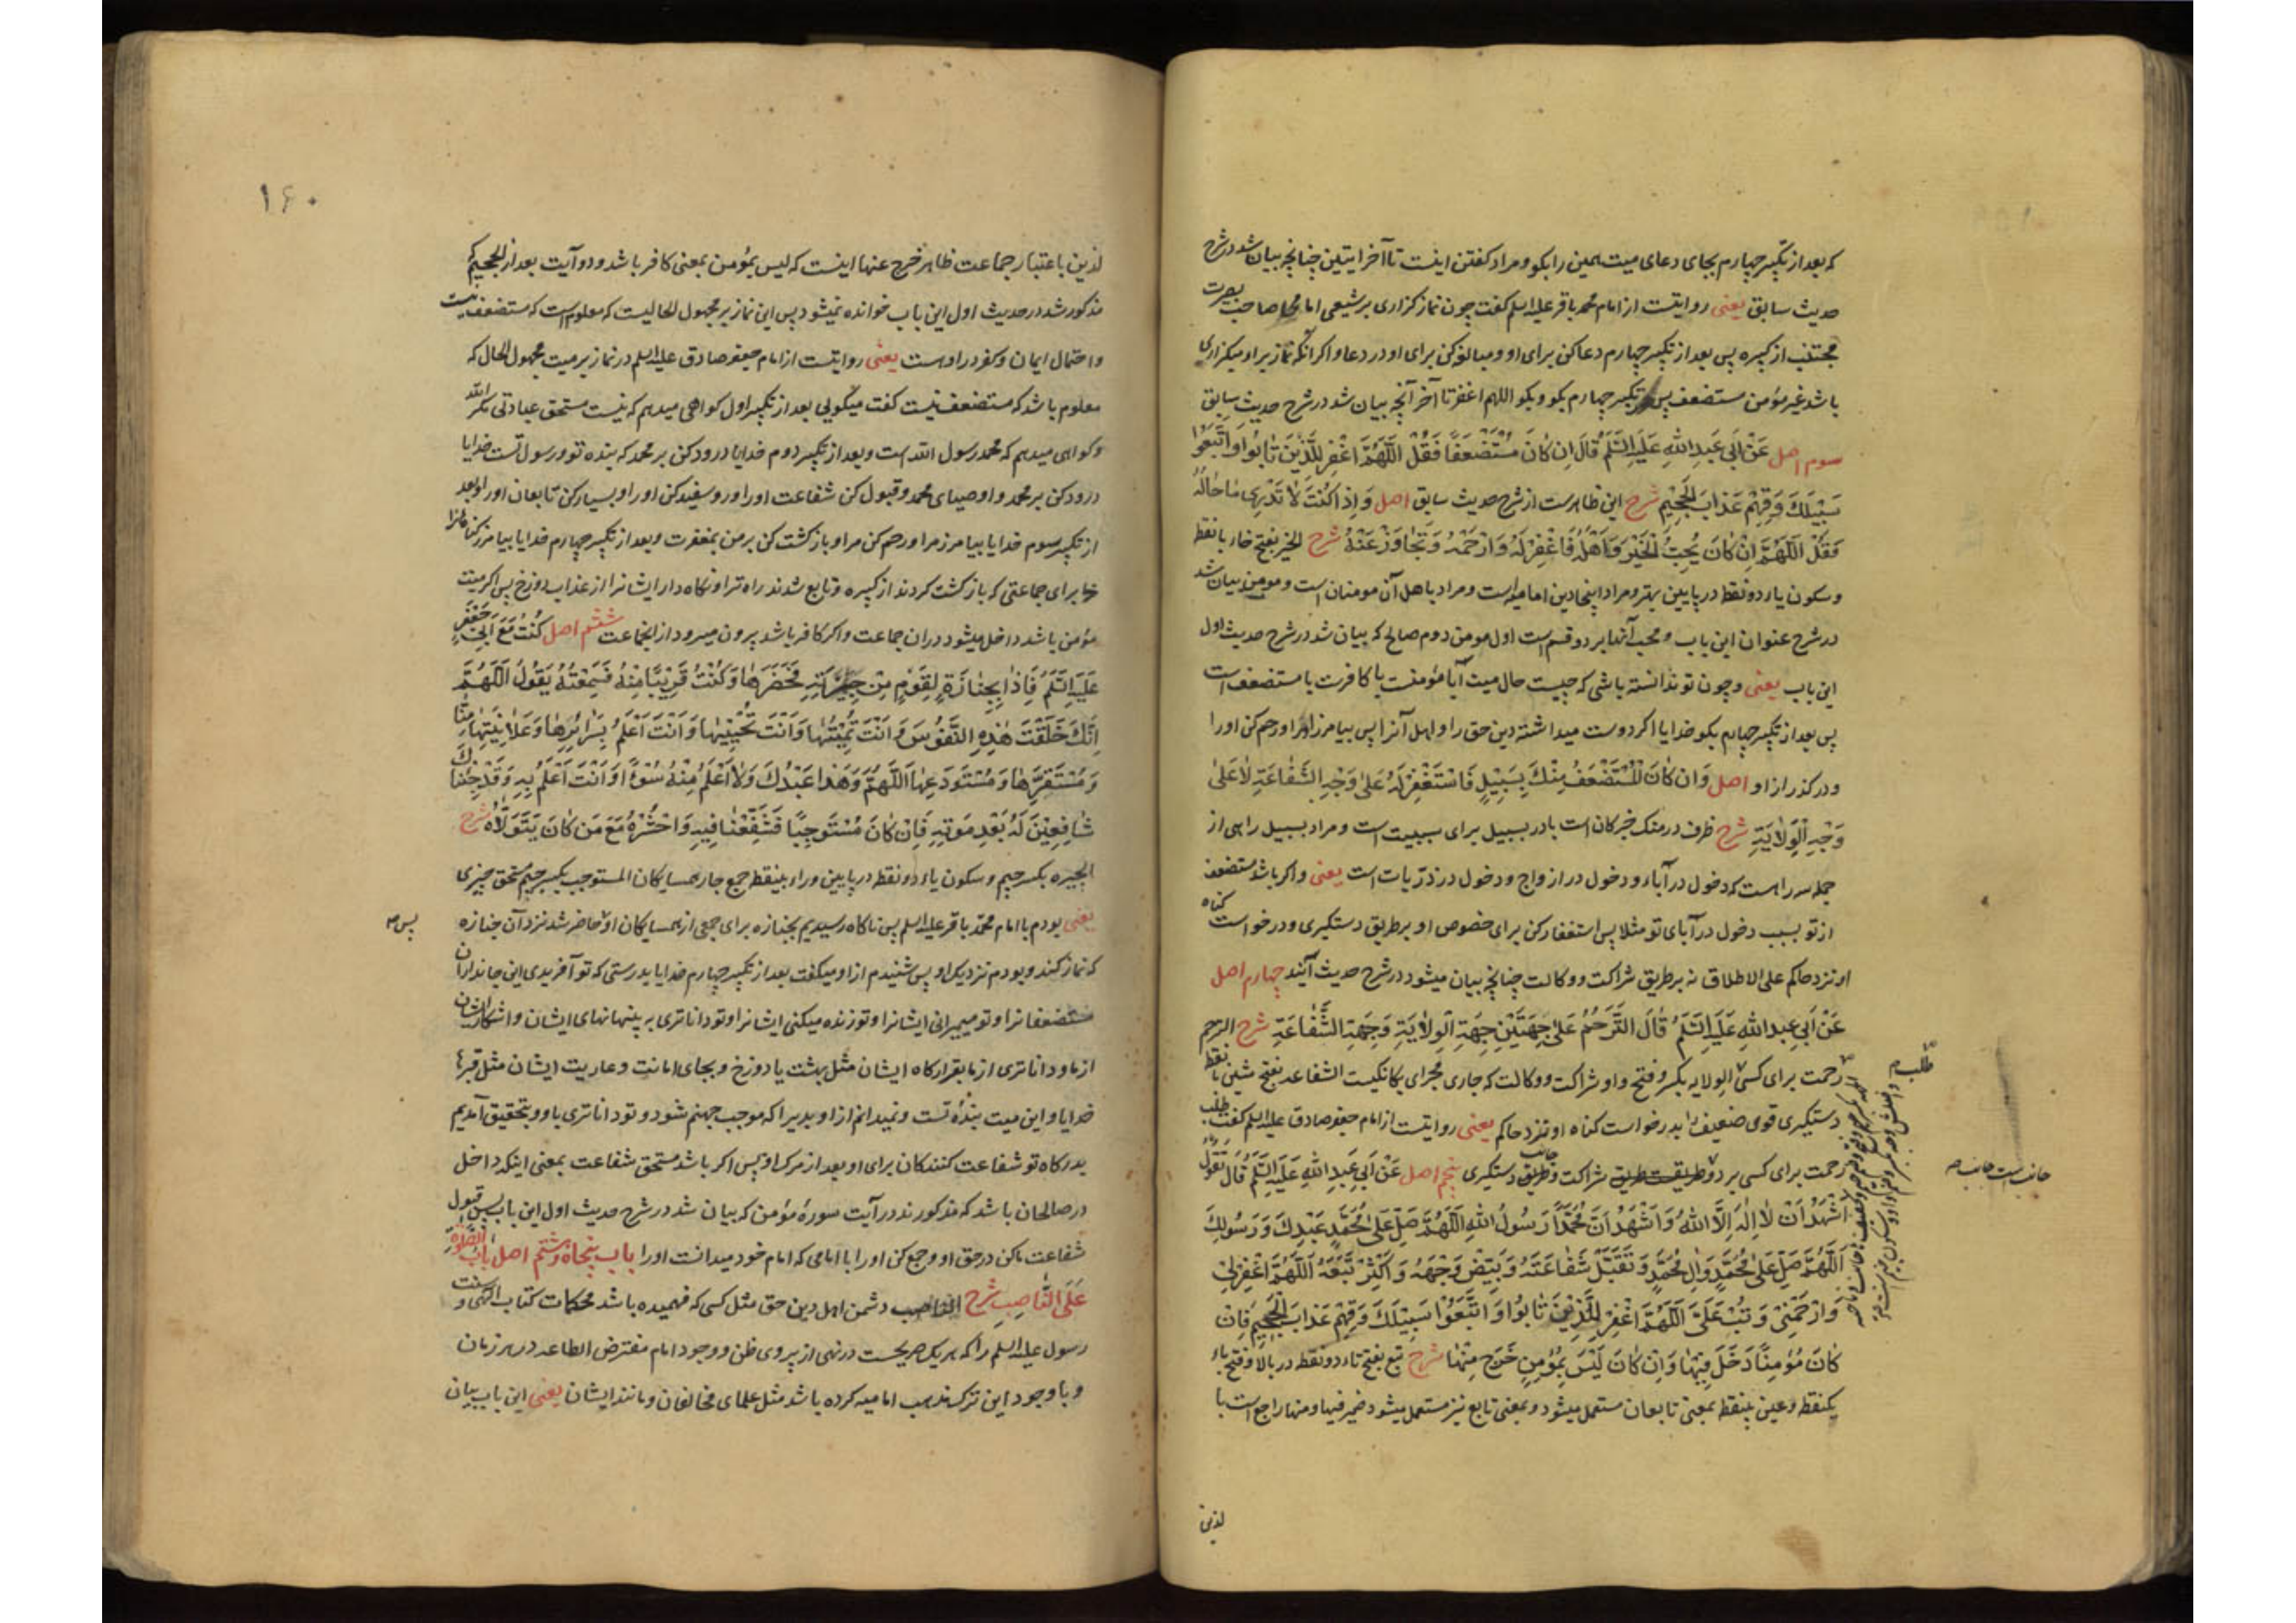 که بعد از تکبیر چهارم بجای دعای میت همین را بکو و مراد کفتن اینست تا آخر ایتین چنانچه بیان شد در شرح
حدیث سابق یعنی روایتست از امام محمد باقر علیه السلم کفت چون نماز کزاری بر شیعی امامی صاحب بصیرت
مجتنب از کبیره پس بعد از تکبیر چهارم دعا کن برای او و مبالغه کن برای او در دعا و اکر آنکه نماز بر او میکزاری
باشد غیر مؤمن مستضعف پس تکبیر چهارم بکو و بکو اللهم اغفر تا آخر آنچه بیان شد در شرح حدیث سابق
سوم اصل عَنْ اَبِی عَبدِ اللهِ عَلَیهِ السَّلَمُ قَالَ اِن کَانَ مُسْتَضْعَفًا فَقُلْ اَللّٰهُمَّ اغْفِرْ لِلَّذِیْنَ تَابُوْا وَاتَّبَعُوْا
سَبِیْلَکَ وَقِهِمْ عَذَابَ الْجَحِیْمِ شرح این ظاهرست از شرح حدیث سابق اصل وَاِذَا کُنْتَ لَا تَدْرِی مَا حَالُهُ
فَقُلْ اَللّٰهُمَّ اِنْ کَانَ یُحِبُّ الْخَیْرَ وَاَهْلَهُ فَاغْفِرْ لَهُ وَارْحَمْهُ وَتَجَاوَزْ عَنْهُ شرح الخیر بفتح خاء بانقطه
و سکون یاء دو نقطه در پایین بهتر و مراد اینجا دین امامیه است و مراد باهل آن مومنان است و مومن بیان شد
در شرح عنوان این باب و محب آنها بر دو قسم است اول مومن دوم صالح که بیان شد در شرح حدیث اول
این باب یعنی و چون تو ندانسته باشی که چیست حال میت آیا مؤمنست یا کافرست یا مستضعف است
پس بعد از تکبیر چهارم بکو خدایا اکر دوست میداشته دین حق را و اهل آنرا پس بیامرز او را و رحم کن او را
و در کذر از او اصل وَاِن کَانَ الْمُسْتَضْعَفُ مِنْکَ بِسَبِیْلٍ فَاسْتَغْفِرْ لَهُ عَلٰی وَجْهِ الشَّفَاعَةِ لَا عَلٰی
وَجْهِ الْوِلَایَةِ شرح ظرف در منک خبر کان است با در بسبیل برای سببیت است و مراد بسبیل راهی از
جمله سه راهست که دخول در آباء و دخول در ازواج و دخول در ذرّیات است یعنی و اکر باشد مستضعف
از تو بسبب دخول در آبای تو مثلا پس استغفار کن برای خصوص او بر طریق دستکیری و درخواست کناه
او نزد حاکم علی الاطلاق نه بر طریق شراکت و وکالت چنانچه بیان میشود در شرح حدیث آینده چهارم اصل
عَنْ اَبِی عَبدِ اللهِ عَلَیهِ السَّلَمُ قَالَ التَّرَحُّمُ عَلٰی جِهَتَیْنِ جِهَةِ الْوِلَایَةِ وَجِهَةِ الشَّفَاعَةِ شرح الترحم
رحمت برای کسی الولایه بکسر و فتح واو شراکت و وکالت که جاری مجرای یکانکیست الشفاعه بفتح شین بانقطه
دستکیری قوی ضعیف را بدرخواست کناه او نزد حاکم یعنی روایتست از امام جعفر صادق علیه السلم کفت طلب
رحمت برای کسی بر دو شراکت و جانب دستکیری پنجم اصل عَنْ اَبِی عَبدِ اللهِ عَلَیهِ السَّلَمُ قَالَ تَقُولُ
اَشْهَدُ اَنْ لَا اِلٰهَ اِلَّا اللهُ وَاَشْهَدُ اَنَّ مُحَمَّدًا رَسُولُ اللهِ اَللّٰهُمَّ صَلِّ عَلٰی مُحَمَّدٍ عَبْدِکَ وَرَسُولِکَ
اَللّٰهُمَّ صَلِّ عَلٰی مُحَمَّدٍ وَاٰلِ مُحَمَّدٍ وَتَقَبَّلْ شَفَاعَتَهُ وَبَیِّضْ وَجْهَهُ وَاَکْثِرْ تَبَعَهُ اَللّٰهُمَّ اغْفِرْلِیْ
وَارْحَمْنِیْ وَتُبْ عَلَیَّ اَللّٰهُمَّ اغْفِرْ لِلَّذِیْنَ تَابُوا وَاتَّبَعُوْا سَبِیْلَکَ وَقِهِمْ عَذَابَ الْجَحِیْمِ فَاِنْ
کَانَ مُؤْمِنًا دَخَلَ فِیْهَا وَاِنْ کَانَ لَیْسَ بِمُؤْمِنٍ خَرَجَ مِنْهَا شرح تبع بفتح تاء دو نقطه در بالا و فتح باء
یکنقطه و عین بینقطه بمعنی تابعان مستعمل میشود و بمعنی تابع نیز مستعمل میشود ضمیر فیها و منها راجع است با
لذین
طلب
جانب است
۱۶۰
لذین باعتبار جماعت ظاهر خرج عنها اینست که لیس بمؤمن بمعنی کافر باشد و دو آیت بعد از الجحیم که
مذکور شد در حدیث اول این باب خوانده نمیشود پس این نماز بر مجهول الحالیست که معلوم است که مستضعف نیست
و احتمال ایمان و کفر در او هست یعنی روایتست از امام جعفر صادق علیه السلم در نماز بر میت مجهول الحال که
معلوم باشد که مستضعف نیست کفت میکویی بعد از تکبیر اول کواهی میدهم که نیست مستحق عبادتی مکر الله
و کواهی میدهم که محمد رسول الله است و بعد از تکبیر دوم خدایا درود کن بر محمد که بنده تو و رسول تست خدایا
درود کن بر محمد و اوصیای محمد و قبول کن شفاعت او را و رو سفید کن او را و بسیار کن تابعان او را و بعد
از تکبیر سوم خدایا بیامرز مرا و رحم کن مرا و باز کشت کن بر من بمغفرت و بعد از تکبیر چهارم خدایا بیامرز کناهانرا
برای جماعتی که باز کشت کردند از کبیره و تابع شدند راه ترا و نکاه دار ایشانرا از عذاب دوزخ پس اکر میت
مؤمن باشد داخل میشود دران جماعت و اکر کافر باشد بیرون میرود از انجماعت ششم اصل کُنْتُ مَعَ اَبِی جَعْفَرٍ
عَلَیهِ السَّلَمُ فَاِذَا بِجِنَازَةٍ لِقَوْمٍ مِنْ جِیْرَتِهِ فَحَضَرَهَا وَکُنْتُ قَرِیْبًا مِنْهُ فَسَمِعْتُهُ یَقُولُ اَللّٰهُمَّ
اِنَّکَ خَلَقْتَ هٰذِهِ النُّفُوْسَ وَاَنْتَ تُمِیْتُهَا وَاَنْتَ تُحْیِیْهَا وَاَنْتَ اَعْلَمُ بِسَرَائِرِهَا وَعَلَانِیَتِهَا مِنَّا
وَمُسْتَقَرِّهَا وَمُسْتَوْدَعِهَا اَللّٰهُمَّ وَهٰذَا عَبْدُکَ وَلَا اَعْلَمُ مِنْهُ سُوْءًا وَاَنْتَ اَعْلَمُ بِهِ وَقَدْ جِئْنَاکَ
شَافِعِیْنَ لَهُ بَعْدَ مَوْتِهِ فَاِنْ کَانَ مُسْتَوْجِبًا فَشَفِّعْنَا فِیهِ وَاحْشُرْهُ مَعَ مَنْ کَانَ یَتَوَلَّاهُ شرح
الجیره بکسر جیم و سکون یاء دو نقطه در پایین و راء بینقطه جمع جار همسایکان المستوجب بکسر جیم مستحق چیزی
یعنی بودم با امام محمد باقر علیه السلم پس ناکاه رسیدیم بجنازه برای جمعی از همسایکان او حاضر شد نزد آن جنازه
پس
که نماز کند و بودم نزدیک او پس شنیدم از او میکفت بعد از تکبیر چهارم خدایا بدرستی که تو آفریدی این جانداران
مستضعفانرا و تو میمیرانی ایشانرا و تو زنده میکنی ایشانرا و تو داناتری به پنهانهای ایشان و اشکار ایشان
از ما و داناتری از ما بقرارکاه ایشان مثل بهشت یا دوزخ و بجای امانت و عاریت ایشان مثل قبرها
خدایا و این میت بندهٔ تست و نمیدانم از او بدیرا که موجب جهنم شود و تو داناتری باو و بتحقیق آمدیم
بدرکاه تو شفاعت کنندکان برای او بعد از مرک او پس اکر باشد مستحق شفاعت بمعنی اینکه داخل
در صالحان باشد که مذکورند در آیت سورهٔ مؤمن که بیان شد در شرح حدیث اول این باب پس قبول
شفاعت ما کن در حق او و جمع کن او را با امامی که امام خود میدانست او را باب پنجاه و ششم اصل بَابُ الصَّلٰوةِ
عَلَی النَّاصِبِ شرح الناصب دشمن اهل دین حق مثل کسی که فهمیده باشد محکمات کتاب الهی و سنت
رسول علیه السلم را که هر یک صریحست در نهی از پیروی ظن و وجود امام مفترض الطاعه در هر زمان
و با وجود این ترک مذهب امامیه کرده باشد مثل علمای مخالفان و مانند ایشان یعنی این باب بیان